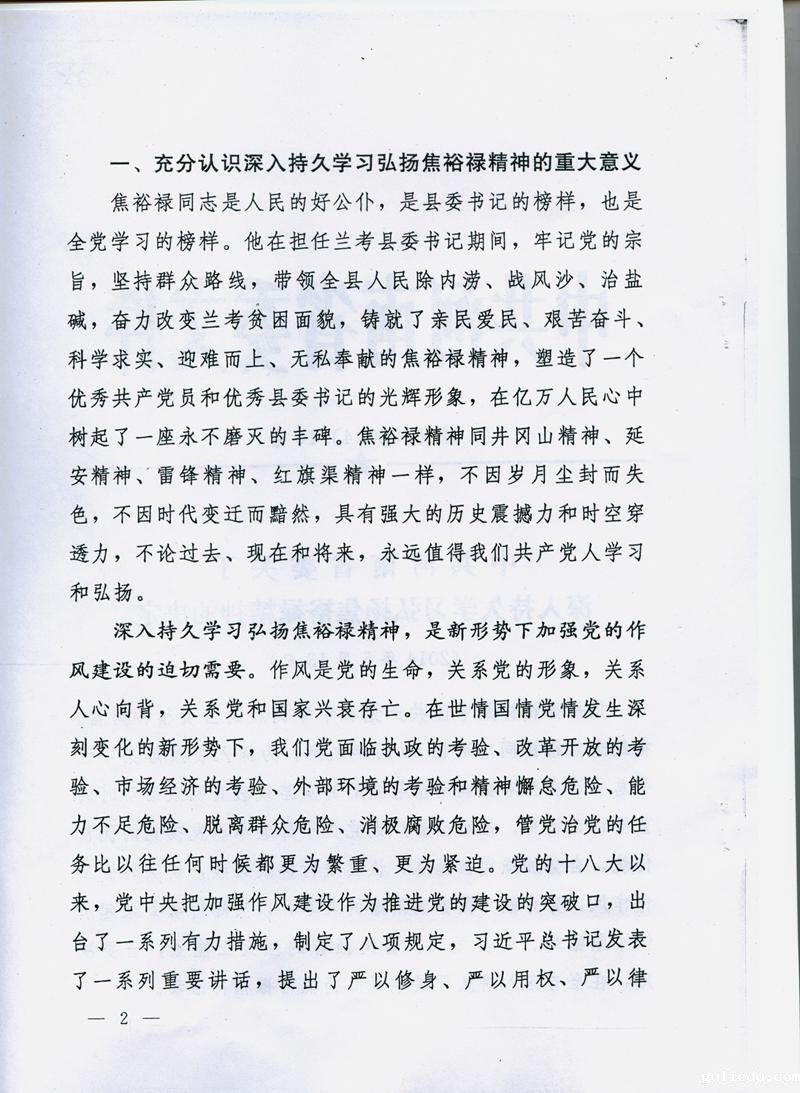 一、充分认识深入持久学习弘扬焦裕禄精神的重大意义
焦裕禄同志是人民的好公仆，是县委书记的榜样，也是
全党学习的榜样。他在担任兰考县委书记期间，牢记党的宗
旨，坚持群众路线，带领全县人民除内涝、战风沙、治盐
碱，奋力改变兰考贫困面貌，铸就了亲民爱民、艰苦奋斗、
科学求实、迎难而上、无私奉献的焦裕禄精神，塑造了一个
优秀共产党员和优秀县委书记的光辉形象，在亿万人民心中
树起了一座永不磨灭的丰碑。焦裕禄精神同井冈山精神、延
安精神、雷锋精神、红旗渠精神一样，不因岁月尘封而失
色，不因时代变迁而黯然，具有强大的历史震撼力和时空穿
透力，不论过去、现在和将来，永远值得我们共产党人学习
和弘扬。
深入持久学习弘扬焦裕禄精神，是新形势下加强党的作
风建设的迫切需要。作风是党的生命，关系党的形象，关系
人心向背，关系党和国家兴衰存亡。在世情国情党情发生深
刻变化的新形势下，我们党面临执政的考验、改革开放的考
验、市场经济的考验、外部环境的考验和精神懈怠危险、能
力不足危险、脱离群众危险、消极腐败危险，管党治党的任
务比以往任何时候都更为繁重、更为紧迫。党的十八大以
来，党中央把加强作风建设作为推进党的建设的突破口，出
台了一系列有力措施，制定了八项规定，习近平总书记发表
了一系列重要讲话，提出了严以修身、严以用权、严以律
— 2 —
gulledu.com